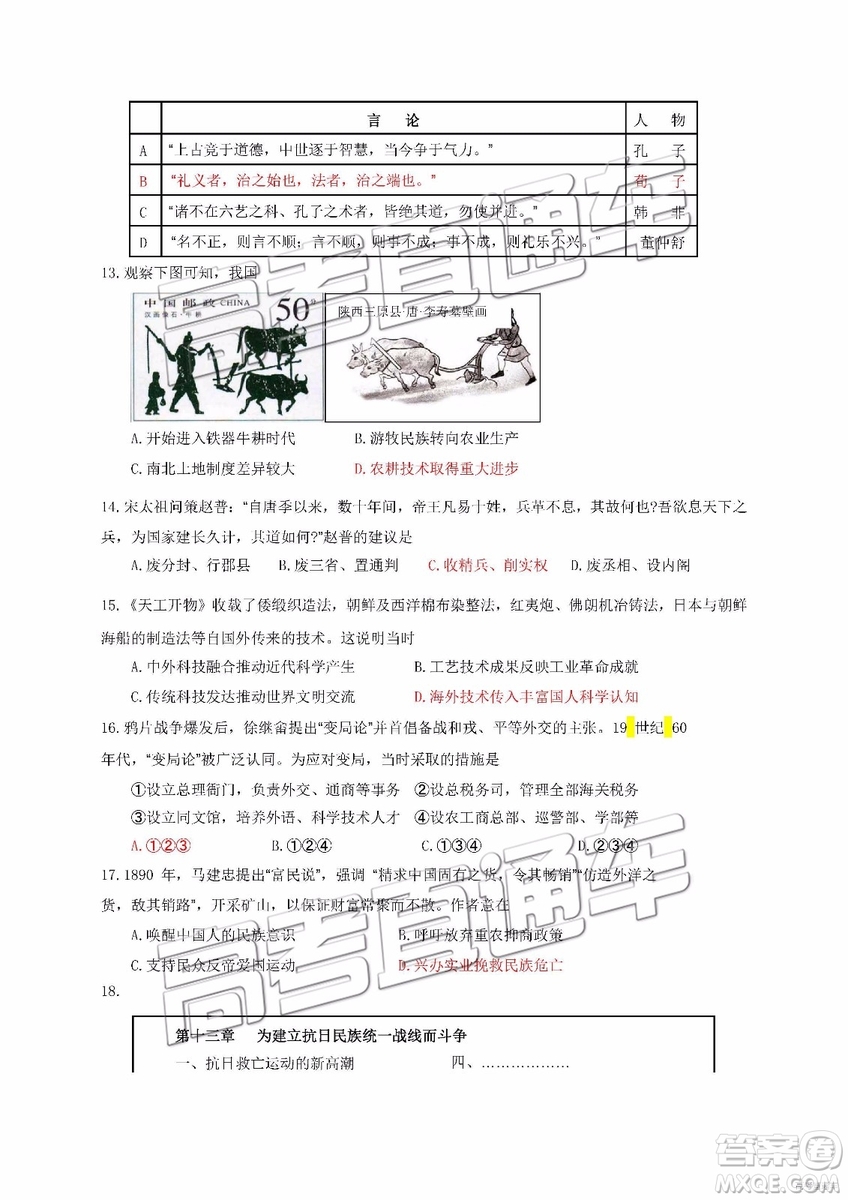 言 论 人 物
A “上古竞于道德，中世逐于智慧，当今争于气力。” 孔 子
B “礼义者，治之始也，法者，治之端也。” 荀 子
C “诸不在六艺之科、孔子之术者，皆绝其道，勿使并进。” 韩 非
D “名不正，则言不顺；言不顺，则事不成；事不成，则礼乐不兴。” 董仲舒
13.观察下图可知，我国
中国邮政 CHINA 50分
汉画像石·牛耕
陕西三原县·唐·李寿墓壁画
A.开始进入铁器牛耕时代 B.游牧民族转向农业生产
C.南北土地制度差异较大 D.农耕技术取得重大进步
14.宋太祖问策赵普：“自唐季以来，数十年间，帝王凡易十姓，兵革不息，其故何也?吾欲息天下之
兵，为国家建长久计，其道如何?”赵普的建议是
A.废分封、行郡县 B.废三省、置通判 C.收精兵、削实权 D.废丞相、设内阁
15.《天工开物》收载了倭缎织造法，朝鲜及西洋棉布染整法，红夷炮、佛朗机冶铸法，日本与朝鲜
海船的制造法等自国外传来的技术。这说明当时
A.中外科技融合推动近代科学产生 B.工艺技术成果反映工业革命成就
C.传统科技发达推动世界文明交流 D.海外技术传入丰富国人科学认知
16.鸦片战争爆发后，徐继畬提出“变局论”并首倡备战和戎、平等外交的主张。19 世纪 60
年代，“变局论”被广泛认同。为应对变局，当时采取的措施是
①设立总理衙门，负责外交、通商等事务 ②设总税务司，管理全部海关税务
③设立同文馆，培养外语、科学技术人才 ④设农工商总部、巡警部、学部等
A.①②③ B.①②④ C.①③④ D.②③④
17.1890 年，马建忠提出“富民说”，强调 “精求中国固有之货，令其畅销”“仿造外洋之
货，敌其销路”，开采矿山，以保证财富常聚而不散。作者意在
A.唤醒中国人的民族意识 B.呼吁放弃重农抑商政策
C.支持民众反帝爱国运动 D.兴办实业挽救民族危亡
18.
第十三章 为建立抗日民族统一战线而斗争
一、抗日救亡运动的新高潮 四、………………
高考直通车
高考直通车
答案圈
MXQE.COM